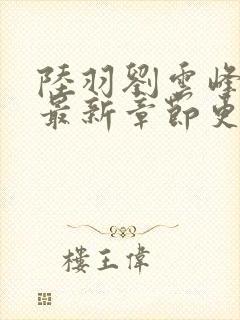 陸羽劉雲峰
最新章節更
樓王偉